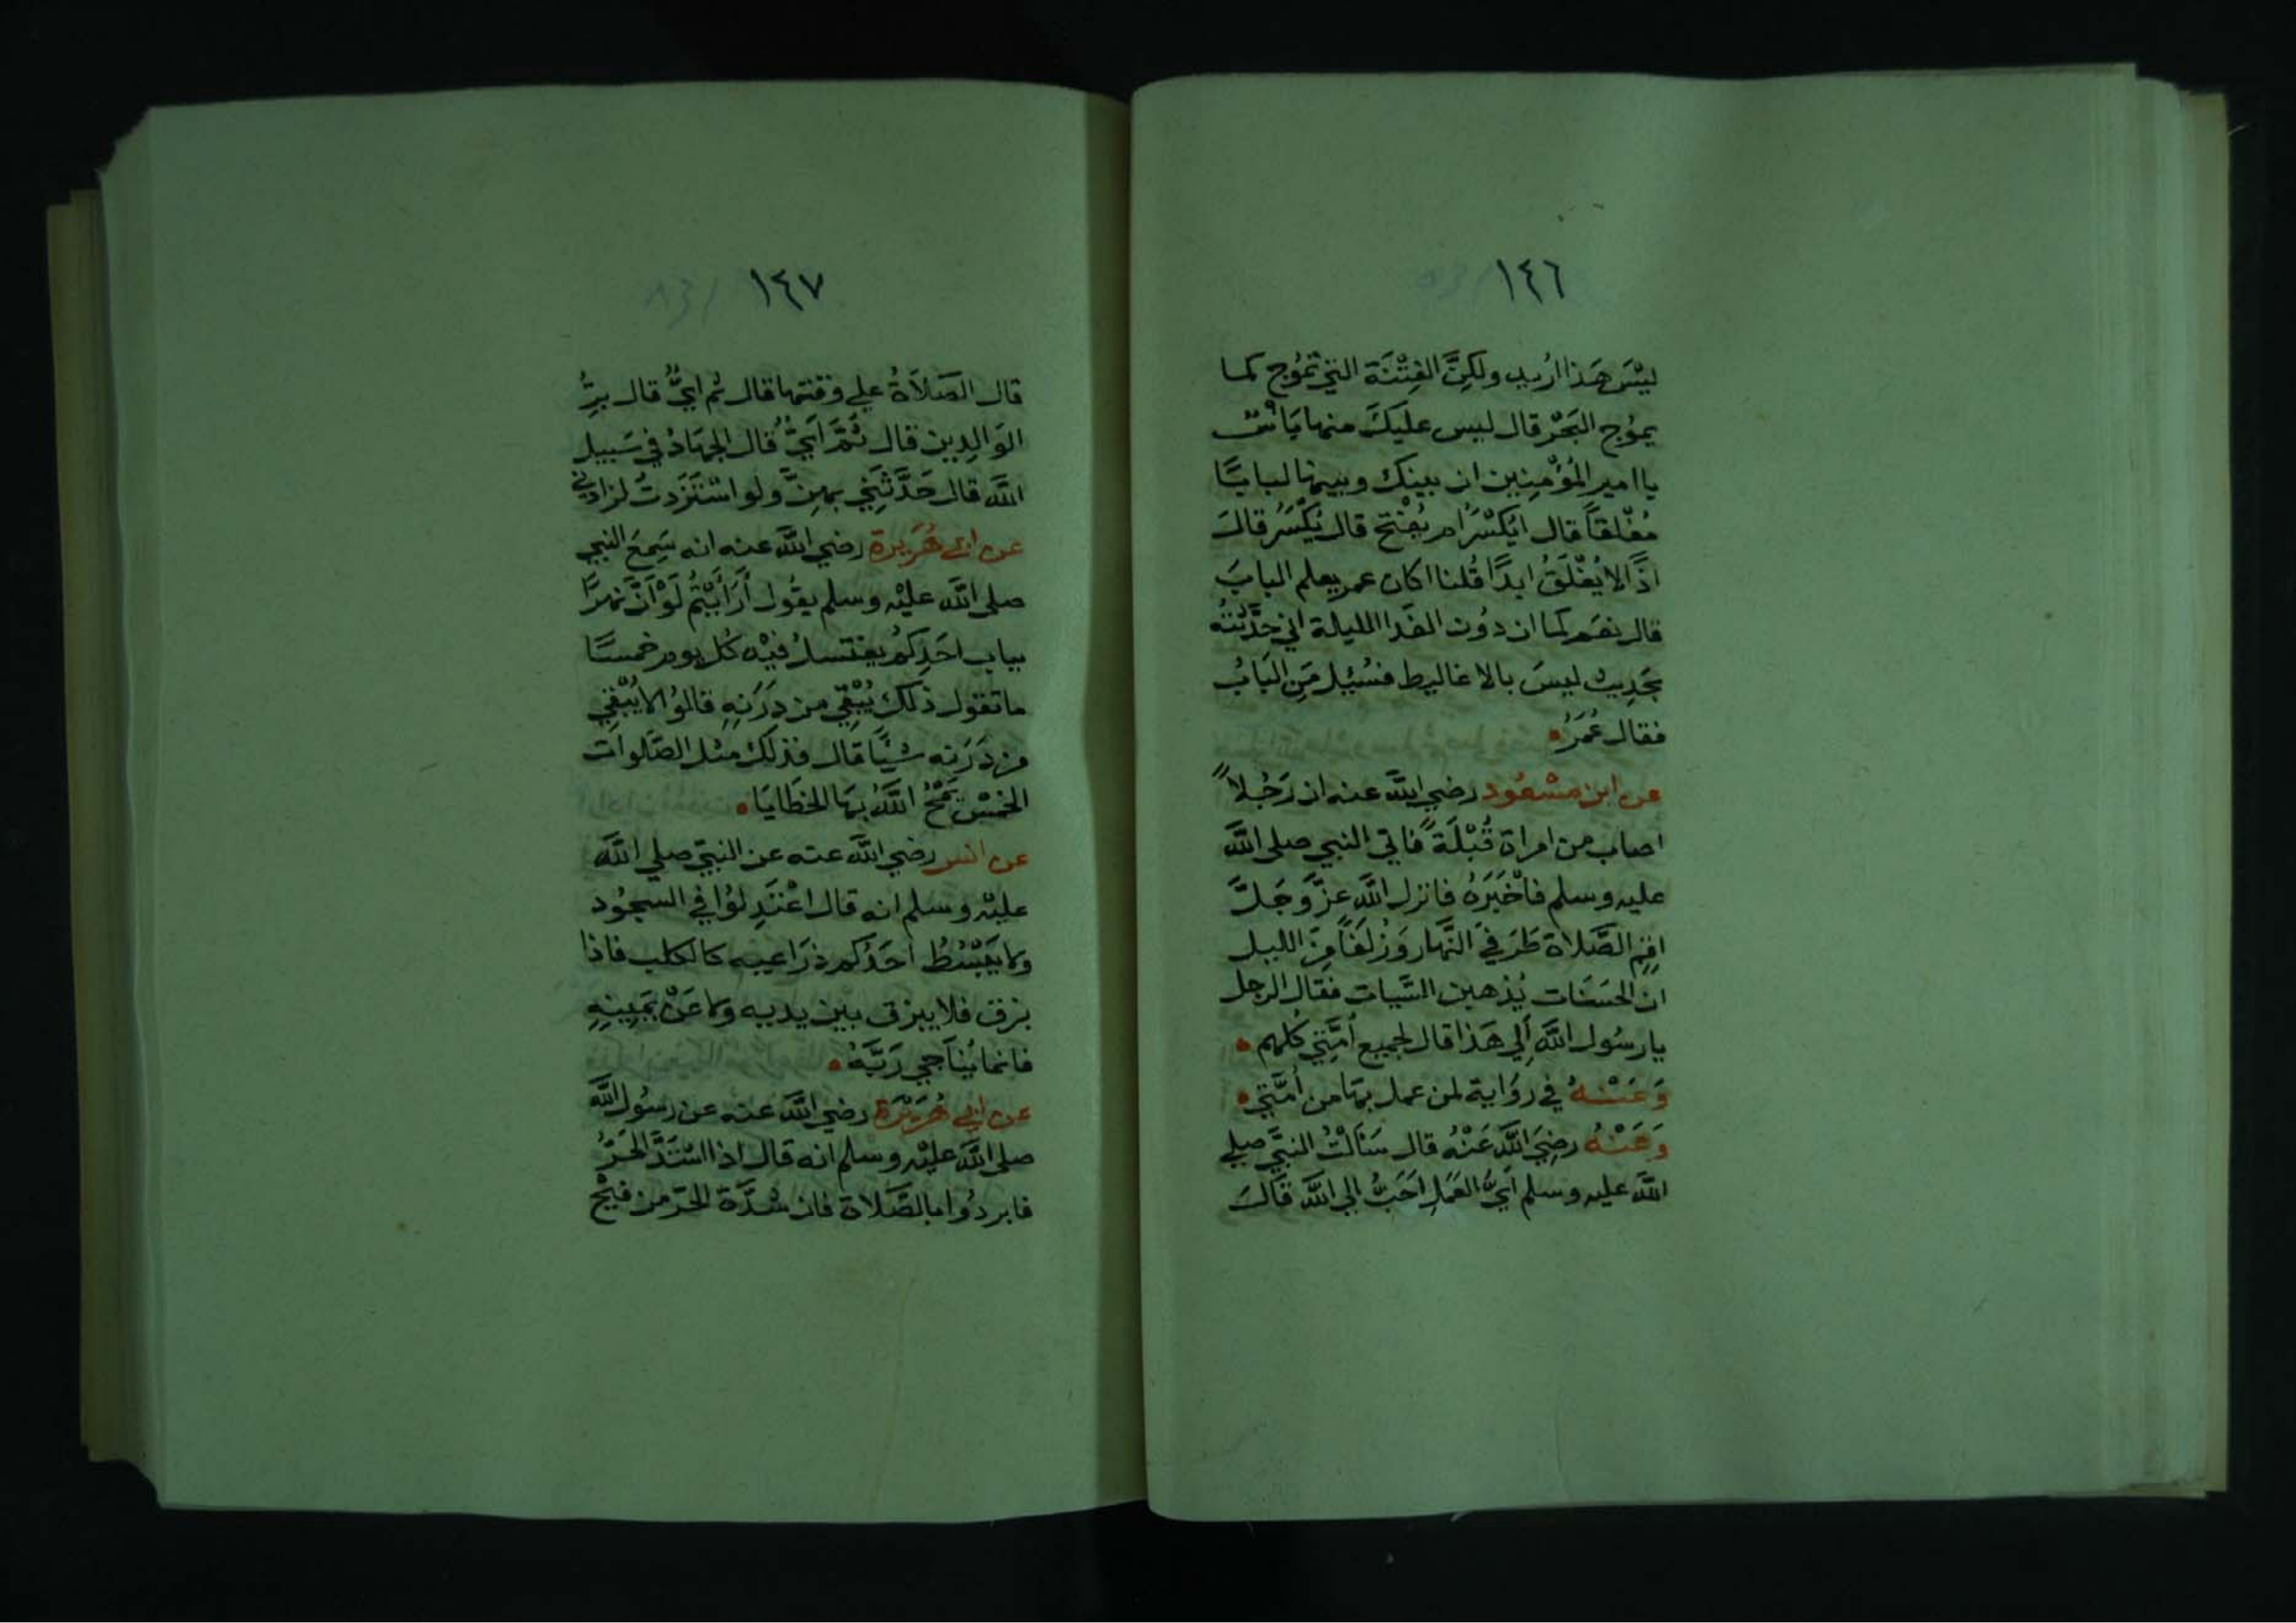 ١٤٦
ليْسَ هَذا اُريد ولكِنَّ الفِتْنَة التي تمُوج كما
يموُج البَحْر قال ليس عليكَ منها بَاْسٌ
يا امير المُؤْمِنِين ان بينك وبينها لبابًا
مُغْلقاً قال ايُكْسَرُ ام يُفْتح قال يُكْسَرُ قالَ
اذًا لا يُغْلَقُ ابدًا قُلنا اكان عمر يعلم البابَ
قال نعَم كما ان دوُن الغَد الليلة اني حَدَّثتُه
بحَدِيث ليسَ بالاغاليط فسُئِل مَنِ البَابُ
فقال عُمَرُ
عن ابن مَسْعُود رضي الله عنه ان رَجُلاً
اصاب من امراة قُبْلَةً فاتي النبي صلى الله
عليه وسلم فاَخْبَرَهُ فانزل الله عزَّ وَجَلَّ
اقِم الصَّلاة طَرَفيَ النَّهار وَزُلَفاً مِنَ الليل
ان الحَسَنات يُذهبن السَّيات فقال الرجل
يا رسُول الله اَلِي هَذا قال لجميع اُمَّتِي كلهم
وَعَنْهُ في روَاية لمن عمل بهَا من اُمَّتي
وَعَنْهُ رضِيَ الله عَنْهُ قال سَاَلتُ النبَّي صلي
الله عليه وسلم اَيُّ العَمَل اَحَبُّ الي الله قَالَ
١٤٧
قال الصَلاَةُ علي وقتها قال ثم ايٌّ قال برُّ
الوَالدِين قال ثُمَّ اَيٌّ قال الجهَادُ في سَبيل
الله قال حَدَّثَنِي بهِنَّ ولو استَزَدتُ لزادني
عن ابي هُرَيرة رضي الله عنه انه سَمِعَ النبي
صلى الله عليْه وسلم يقُول أَرَأَيْتُم لَوْ اَنَّ نهرًا
بباب احَدِكُم يغتسلُ فيْه كُل يوم خمسًا
ما تقول ذلك يُبْقِي من دِرَنِهِ قالوُا لا يُبْقِي
من دَرَنه شيْئًا قال فذلك مثل الصَّلوات
الخمْسِ يَمْحُ اللهُ بهَا الخطَايَا
عن انس رضي الله عنه عن النبيّ صلي الله
عليْه وسلم انه قال اعْتَدِلوُا في السجُود
ولا يَبْسُطُ اَحَدُكم ذرَاعيه كالكلب فاذا
بزق فلا يبزق بين يديه ولا عَنْ يَمِينهِ
فانما يُناَجي رَبَّهُ
عن ابي هُرَيْرَة رضي الله عنه عن رسُول الله
صلى الله عليْه وسْلم انه قال اذا اشتَدَّ الحَرُّ
فابردُوا بالصَّلاة فان شدَّة الحَرّ من فيْحِ